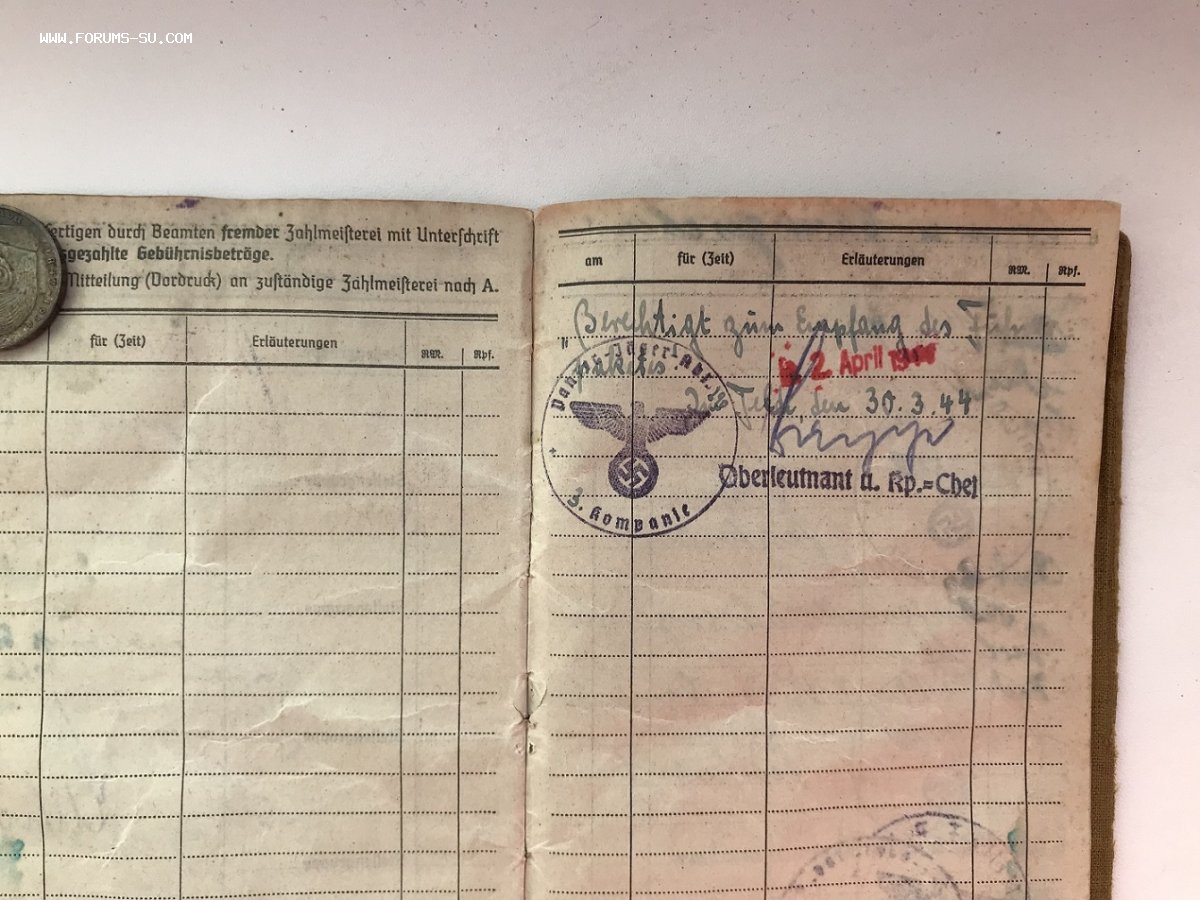 WWW.FORUMS-SU.COM
fertigen durch Beamten fremder Zahlmeisterei mit Unterschrift
sgezahlte Gebührnisbeträge.
Mitteilung (Vordruck) an zuständige Zahlmeisterei nach A.
für (Zeit) Erläuterungen RM. Rpf.
am für (Zeit) Erläuterungen RM. Rpf.
Berechtigt zum Empfang des
2. April
den 30.3.44
Oberleutnant u. Kp.=Chef
3. Kompanie